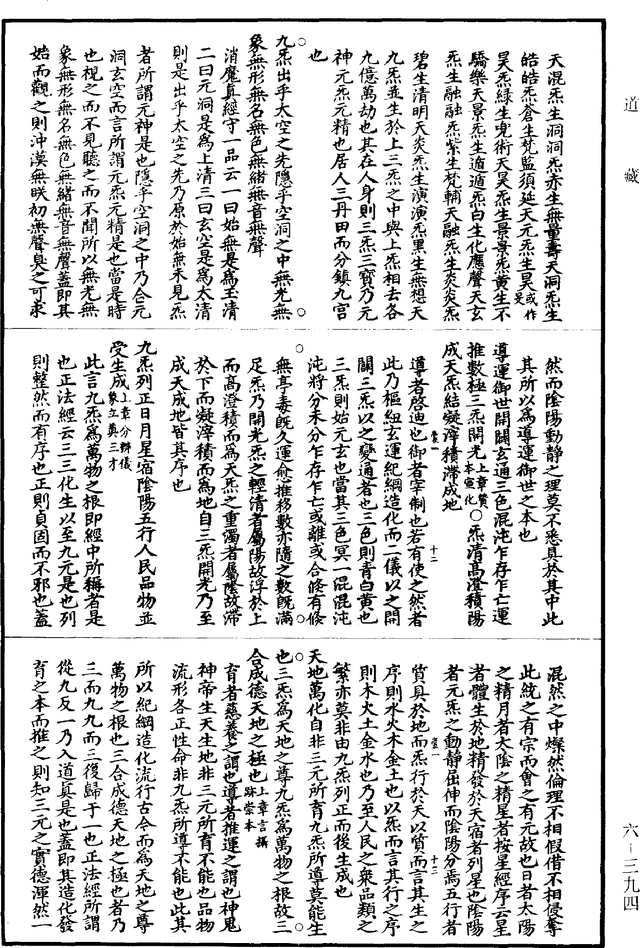 天混炁生洞洞炁赤生無量壽天洞炁生
皓皓炁蒼生梵監須延天元炁生昊或作是
昊炁綠生兜術天昊炁生景景炁黃生不
驕樂天景炁生遁遁炁白生化應聲天玄
炁生融融炁紫生梵輔天融炁生炎炎炁
碧生清明天炎炁生演演炁黑生無想天
九炁並生於上三炁之中與上炁相去各
九億萬劫也其在人身則三炁三寶乃元
神元炁元精也居人三丹田而分鎮九宫
也
九炁出乎太空之先隱乎空洞之中無光無
象無形無名無色無緒無音無聲
消魔真經守一品云一曰始無是爲玉清
二曰元洞是爲上清三曰玄空是爲太清
則是出乎太空之先乃原於始無未見炁
者所謂元神是也隱乎空洞之中乃合元
洞玄空而言所謂元炁元精是也當是時
也視之而不見聽之而不聞所以無光無
象無形無名無色無緒無音無聲蓋即其
始而觀之則沖漠無朕初無聲臭之可求
然而陰陽動靜之理莫不悉具於其中此
其所以爲導運御世之本也
導運御世開闢玄通三色混沌乍存乍亡運
推數極三炁開光上章質本宣化○炁清高澄積陽
成天炁結凝滓積滯成地
導者啓迪也御者宰制也若有使之然者
此乃樞紐玄運紀綱造化而二儀以之開
闢三炁以之變通者也三色則青白黃也
三炁則始元玄也當其三色冥一混混沌
沌將分未分乍存乍亡或離或合倏有倏
無亭毒既久運愈推移數亦隨之數既滿
足炁乃開光炁之輕清者屬陽故浮於上
而高澄積而爲天炁之重濁者屬陰故滯
於下而凝滓積而爲地自三炁開光乃至
成天成地皆其序也
九炁列正日月星宿陰陽五行人民品物並
受生成上章分辨儀象立奠三才
此言九炁爲萬物之根即經中所稱者是
也正法經云三三化生以至九元是也列
則整然而有序也正則貞固而不邪也蓋
混然之中燦然倫理不相假借不相侵奪
此統之有宗而會之有元故也日者太陽
之精月者太陰之精星者按星經序云星
者體生於地精發於天宿者列星也陰陽
者元炁之動靜屈伸而陰陽分焉五行者
質具於地而炁行於天以質而言其生之
序則水火木金土也以炁而言其行之序
則木火土金水也乃至人民之衆品類之
繁亦莫非由九炁列正而後生成也
天地萬化自非三元所育九炁所導莫能生
也三炁爲天地之尊九炁爲萬物之根故三
合成德天地之極也上章言攝跡崇本
育者慈養之謂也導者推運之謂也神鬼
神帝生天生地非三元所育不能也品物
流形各正性命非九炁所導不能也此其
所以紀綱造化流行古今而爲天地之尊
萬物之根也三合成德天地之極也者乃
三而九九而三復歸于一也正法經所謂
從九反一乃入道真是也蓋即其造化發
育之本而推之則知三元之實德渾然一
道藏
六－三九四